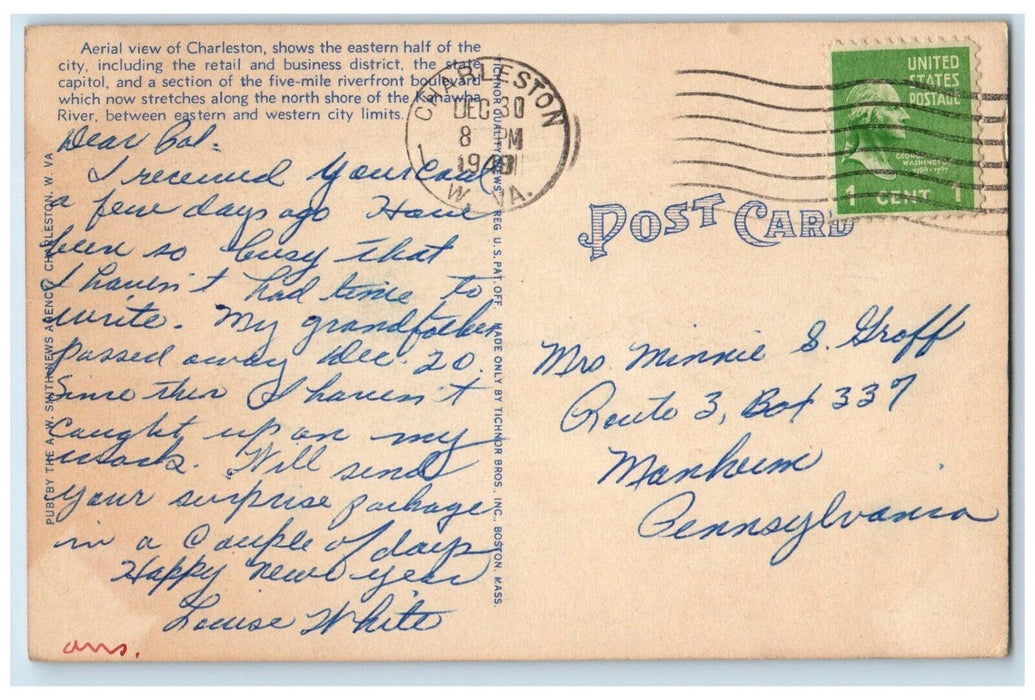 Aerial view of Charleston, shows the eastern half of the
city, including the retail and business district, the state
capitol, and a section of the five-mile riverfront boulevard
which now stretches along the north shore of the Kanawha
River, between eastern and western city limits.
CHARLESTON
DEC 30
8 PM
W. VA.
1
UNITED
STATES
POSTAGE
GEORGE
WASHINGTON
1 CENT 1
POST CARD
Dear Gal:
I received your Card
a few days ago Have
been so busy that
I haven't had time to
write. My grandfather
passed away Dec. 20.
Since then I haven't
caught up on my
work. Will send
your surprise package
in a couple of days
Happy new year
Louise White
ans.
Mrs. Minnie S. Groff
Route 3, Box 337
Manheim
Pennsylvania
PUB. BY THE A. W. SMITH NEWS AGENCY, CHARLESTON, W. VA
TICHNOR QUALITY VIEWS REG. U. S. PAT. OFF. MADE ONLY BY TICHNOR BROS. INC. BOSTON, MASS.